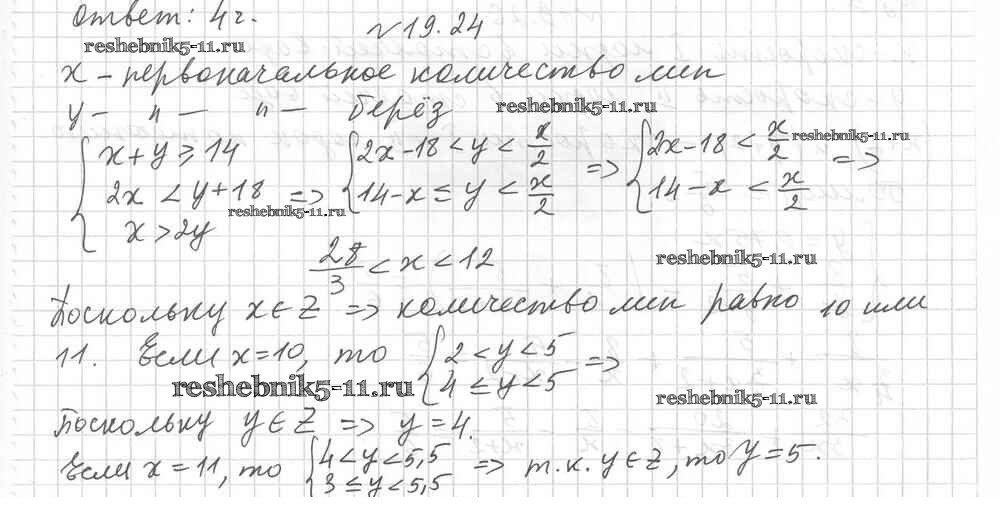 Ответ: 4 г.
№19.24
reshebnik5-11.ru
x – первоначальное количество лип
y – " – " – берёз
reshebnik5-11.ru
{ x + y ≥ 14 { 2x - 18 < y < x/2 { 2x - 18 < x/2 reshebnik5-11.ru
2x < y + 18 => 14 - x ≤ y < x/2 => 14 - x < x/2 =>
x > 2y
reshebnik5-11.ru
28/3 < x < 12
reshebnik5-11.ru
Поскольку x ∈ Z => количество лип равно 10 или
11. Если x = 10, то { 2 < y < 5 =>
4 ≤ y < 5
reshebnik5-11.ru
reshebnik5-11.ru
Поскольку y ∈ Z => y = 4.
Если x = 11, то { 4 < y < 5,5 => т.к. y ∈ Z, то y = 5.
3 ≤ y < 5,5